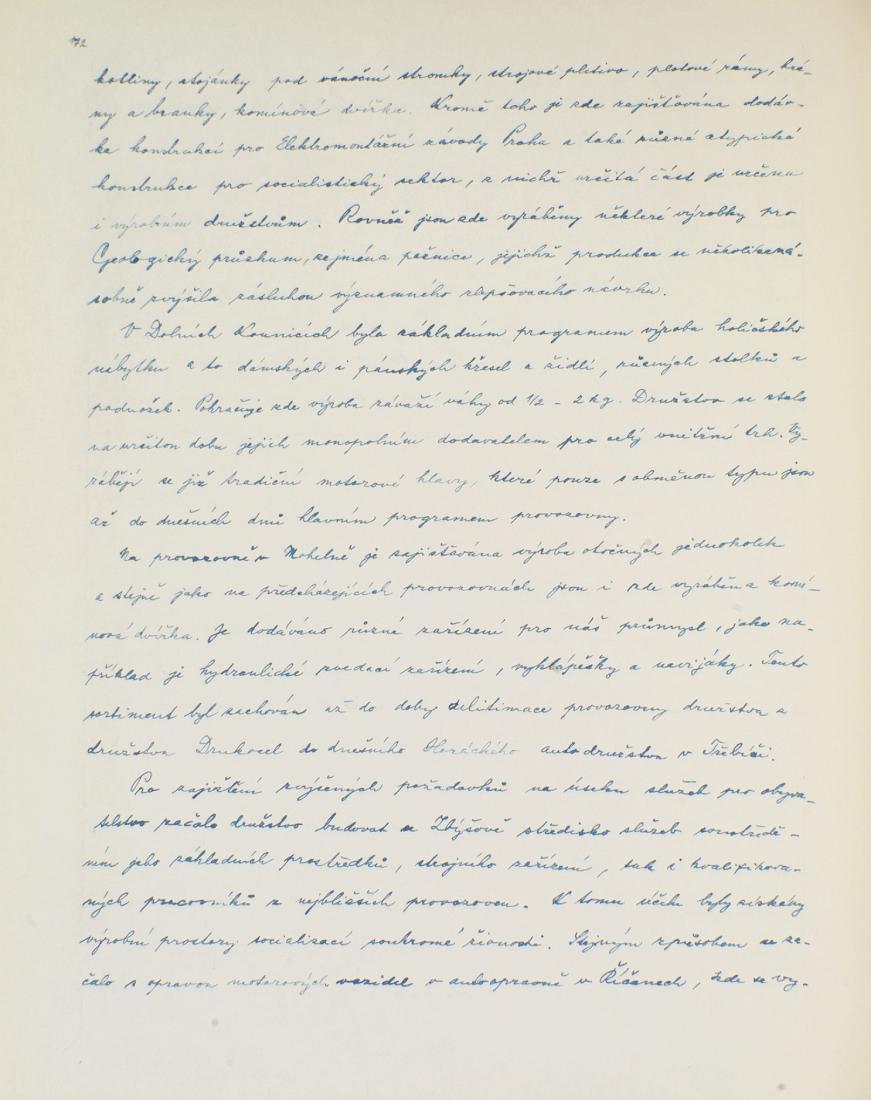 172
kotliny, stojánky pod vánoční stromky, strojové pletivo, plotové rámy, brá-
ny a branky, komínová dvířka. Kromě toho je zde zajišťována dodáv-
ka konstrukcí pro Elektromontážní závody Praha a také různá atypická
konstrukce pro socialistický sektor, z nichž určitá část je určena
i výrobním družstvům. Rovněž jsou zde vyráběny některé výrobky pro
Geologický průzkum, zejména pažnice, jejichž produkce se několikaná-
sobně zvýšila zásluhou významného zlepšovacího návrhu.
V Dolních Kounicích byla základním programem výroba holičského
nábytku a to dámských i pánských křesel a židlí, různých stolků a
podnožek. Pokračuje zde výroba závaží váhy od 1/2 - 2 kg. Družstvo se stalo
na určitou dobu jejich monopolním dodavatelem pro celý vnitřní trh. Vy-
rábějí se již tradiční motorové hlavy, které pouze s obměnou typu jsou
až do dnešních dnů hlavním programem provozovny.
Na provozovně v Mohelně je zajišťována výroba otočných jednokolek
a stejně jako na předcházejících provozovnách jsou i zde vyráběna komí-
nová dvířka. Je dodáváno různé zařízení pro náš průmysl, jako na-
příklad je hydraulické zvedací zařízení, vyklápěčky a navijáky. Tento
sortiment byl zachován až do doby delitimace provozovny družstva a
družstva Drukocel do dnešního Horáckého autodružstva v Třebíči.
Pro zajištění zvýšených požadavků na úseku služeb pro obyva-
telstvo začalo družstvo budovat ve Zbýšově středisko služeb soustředě-
ním jeho základních prostředků, strojního zařízení, tak i kvalifikova-
ných pracovníků z nejbližších provozoven. K tomu účelu byly získány
výrobní prostory socializací soukromé živnosti. Stejným způsobem se za-
čalo s opravou motorových vozidel v autoopravně v Říčanech, kde se vy-